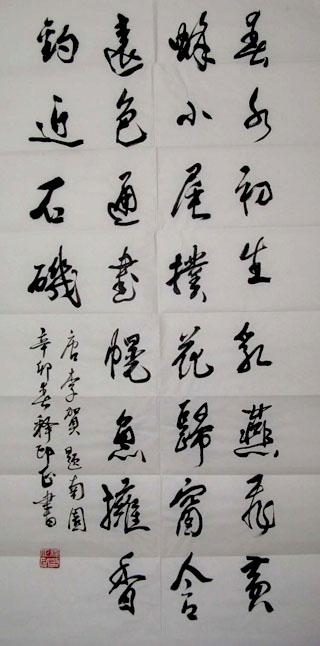 春水初生乳燕飛黃
蜂小尾撲花歸窗含
遠色通書幌魚擁香
鈎近石磯
唐李賀題南園
辛卯春釋印正書